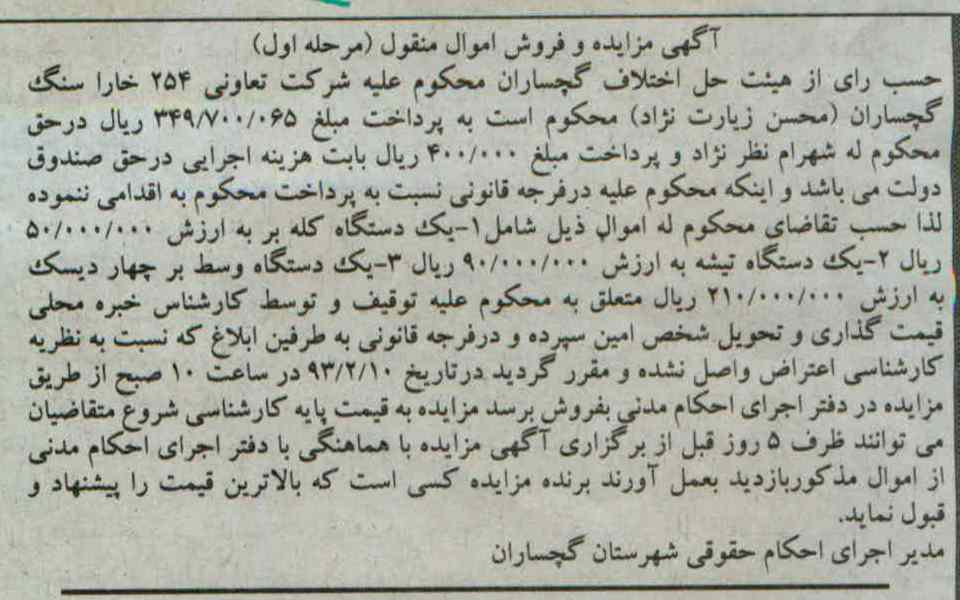 آگهی مزایده و فروش اموال منقول (مرحله اول)
حسب رای از هیئت حل اختلاف گچساران محکوم علیه شرکت تعاونی ۲۵۴ خارا سنگ
گچساران (محسن زیارت نژاد) محکوم است به پرداخت مبلغ ۳۴۹/۷۰۰/۰۶۵ ریال درحق
محکوم له شهرام نظر نژاد و پرداخت مبلغ ۴۰۰/۰۰۰ ریال بابت هزینه اجرایی درحق صندوق
دولت می باشد و اینکه محکوم علیه درفرجه قانونی نسبت به پرداخت محکوم به اقدامی ننموده
لذا حسب تقاضای محکوم له اموال ذیل شامل۱-یک دستگاه کله بر به ارزش ۵۰/۰۰۰/۰۰۰
ریال ۲-یک دستگاه تیشه به ارزش ۹۰/۰۰۰/۰۰۰ ریال ۳-یک دستگاه وسط بر چهار دیسک
به ارزش ۲۱۰/۰۰۰/۰۰۰ ریال متعلق به محکوم علیه توقیف و توسط کارشناس خبره محلی
قیمت گذاری و تحویل شخص امین سپرده و درفرجه قانونی به طرفین ابلاغ که نسبت به نظریه
کارشناسی اعتراض واصل نشده و مقرر گردید درتاریخ ۹۳/۲/۱۰ در ساعت ۱۰ صبح از طریق
مزایده در دفتر اجرای احکام مدنی بفروش برسد مزایده به قیمت پایه کارشناسی شروع متقاضیان
می توانند ظرف ۵ روز قبل از برگزاری آگهی مزایده با هماهنگی با دفتر اجرای احکام مدنی
از اموال مذکوربازدید بعمل آورند برنده مزایده کسی است که بالاترین قیمت را پیشنهاد و
قبول نماید.
مدیر اجرای احکام حقوقی شهرستان گچساران